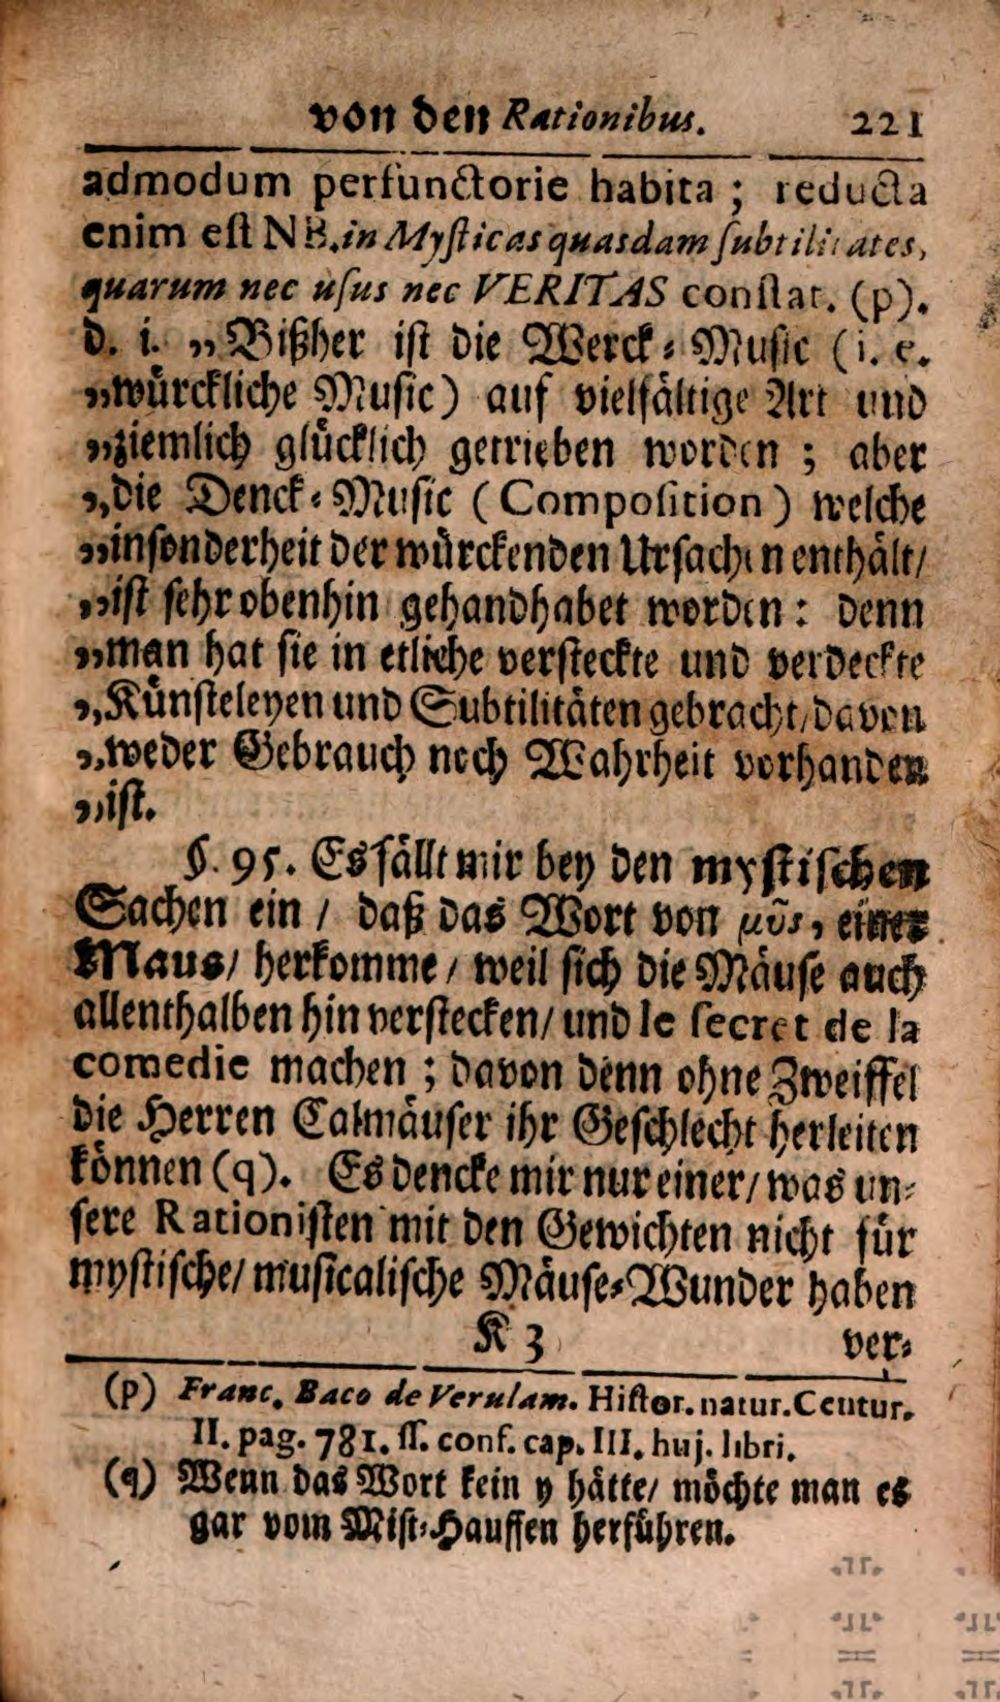 von den Rationibus. 221
admodum perfunctorie habita ; reducta
enim est NB. in Mysticas quasdam subtilitates,
quarum nec usus nec VERITAS constat. (p).
d. i. „Bißher ist die Werck-Music (i. e.
„würckliche Music) auf vielfältige Art und
„ziemlich glücklich getrieben worden ; aber
„die Denck-Music (Composition) welche
„insonderheit der würckenden Ursachen enthält/
„ist sehr obenhin gehandhabet worden: denn
„man hat sie in etliche versteckte und verdeckte
„Künsteleyen und Subtilitäten gebracht/ davon
„weder Gebrauch noch Wahrheit vorhanden
„ist.
§. 95. Es fällt mir bey den mystischen
Sachen ein / daß das Wort von μῦς, einer
Maus/ herkomme / weil sich die Mäuse auch
allenthalben hin verstecken/ und le secret de la
comedie machen ; davon denn ohne Zweiffel
die Herren Calmäuser ihr Geschlecht herleiten
können (q). Es dencke mir nur einer/ was un-
sere Rationisten mit den Gewichten nicht für
mystische/ musicalische Mäuse-Wunder haben
K 3 ver-
(p) Franc. Baco de Verulam. Histor. natur. Centur.
II. pag. 781. ss. conf. cap. III. huj. libri.
(q) Wenn das Wort kein y hätte/ möchte man es
gar vom Mist-Hauffen herführen.